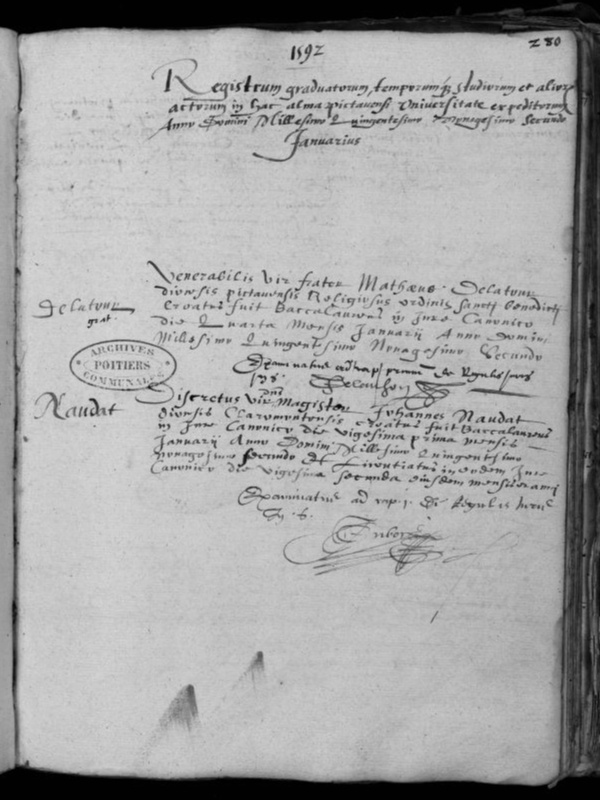 1592
280
Registrum graduatorum, temporumq3 studiorum et alior
actorum in hac alma pictavensi Universitate expeditorum
Anno Domini Millesimo Quingentesimo Nonagesimo Secundo
Januarius
Delatour
grat.
Venerabilis vir frater Mathæus Delatour
diocesis pictavensis Religiosus ordinis sancti benedicti
Creatus fuit Baccalaureus in Jure Canonico
die Quarta Mensis Januarii Anno Domini
Millesimo Quingentesimo Nonagesimo Secundo
Examinatus ad cap primum de Regulis juris
ARCHIVES
POITIERS
COMMUNALES
Naudat
Discretus vir dnus Magister Johannes Naudat
diocesis Claromontensis creatus fuit Baccalaureus
in Jure Canonico die vigesima prima mensis
Januarii Anno Domini Millesimo Quingentesimo
nonagesimo secundo Et Licentiatus in eodem Jure
Canonico die vigesima secunda eiusdem mensis et anni
Examinatus ad cap. i. De Regulis Juris
in. 6.